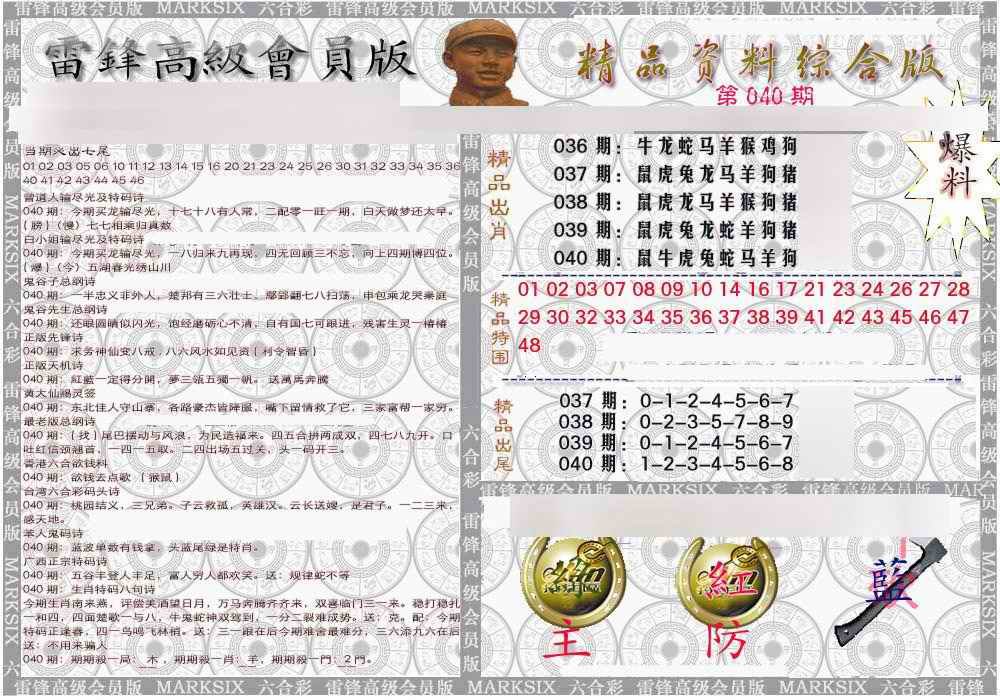 雷锋高级会员版 MARKSIX 六合彩 雷锋高级会员版 MARKSIX 六合彩 雷锋高级会员版
雷鋒高級會員版
精品资料综合版
第 040 期
爆料
01 02 03 05 06 10 11 12 13 14 15 16 20 21 23 24 25 26 30 31 32 33 34 35 36
40 41 42 43 44 45 46
曾道人输尽光及特码诗
040 期：今期买龙输尽光，十七十八有人常，二配零一旺一期，白天做梦还太早。
{膀}（慢）七七相乘归真数
白小姐输尽光及特码诗
040 期：今期买龙输尽光，一八归来九再现，四无回顾三不忘，向上四期博四位。
{爆}（今）五湖春光绣山川
鬼谷子总纲诗
040 期：一半忠义非外人，楚邦有三六壮士，鄢郢翻七八扫荡，申包乘龙哭秦庭
鬼谷先生总纲诗
040 期：还眼圆晴似闪光，饱经磨砺心不清，自有国七可跟进，残害生灵一椿椿
正版先锋诗
040 期：宋务神仙变八戒，八六风水如见资{利令智昏}
正版天机诗
040 期：紅藍一定得分開，夢三瓴五獨一帆。 送萬馬奔騰
黄大仙赐灵签
040 期：东北佳人守山寨，各路豪杰皆降服，嘴下留情救了它，三家富帮一家穷。
最老版总纲诗
040 期：{找}尾巴摆动与风浪，为民造福来。四五合拼两成双，四七八九开。口
吐红信颈翘首，一四一五取。二四出场五过关，头一码开三。
香港六合欲钱料
040 期：欲钱去点歌 {猴鼠}
台湾六合彩码头诗
040 期：桃园结义，三兄弟。子云救孤，英雄汉。云长送嫂，是君子。一二三来，
感天地。
笨人鬼码诗
040 期：蓝波单数有钱拿，头蓝尾绿是特肖。
广西正宗特码诗
040 期：五谷丰登人丰足，富人穷人都欢笑。送：规律蛇不等
040 期：生肖特码八句诗
今期生肖南来燕，评偿美酒望日月，万马奔腾齐齐来，双喜临门三一来。稳打稳扎
一和四，四面楚歌一与八，牛鬼蛇神双驾到，一分二裂难成势。送：克。配：今期
特码正逢春，四一鸟鸣飞林梢。送：三一跟在后今期难舍最难分，三六添九六在后
送：不用来骗人
040 期：期期殺一局：木，期期殺一肖：羊，期期殺一門：2 門。
精品出肖
036 期：牛龙蛇马羊猴鸡狗
037 期：鼠虎兔龙马羊狗猪
038 期：鼠虎龙马羊猴狗猪
039 期：鼠虎兔龙蛇羊狗猪
040 期：鼠牛虎兔蛇马羊狗
精品特围
01 02 03 07 08 09 10 14 16 17 21 23 24 26 27 28
29 30 32 33 34 35 36 37 38 39 41 42 43 45 46 47
48
精品出尾
037 期：0-1-2-4-5-6-7
038 期：0-2-3-5-7-8-9
039 期：0-1-2-4-5-6-7
040 期：1-2-3-4-5-6-8
雷锋高级会员版 MARKSIX 六合彩 雷锋高级会员版
綠
主
紅
防
藍
雷锋高级会员版 MARKSIX 六合彩 雷锋高级会员版 MARKSIX 六合彩 雷锋高级会员版